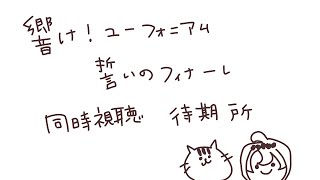 響け！ユーフォニアム
誓いのフィナーレ
同時視聴 待期所